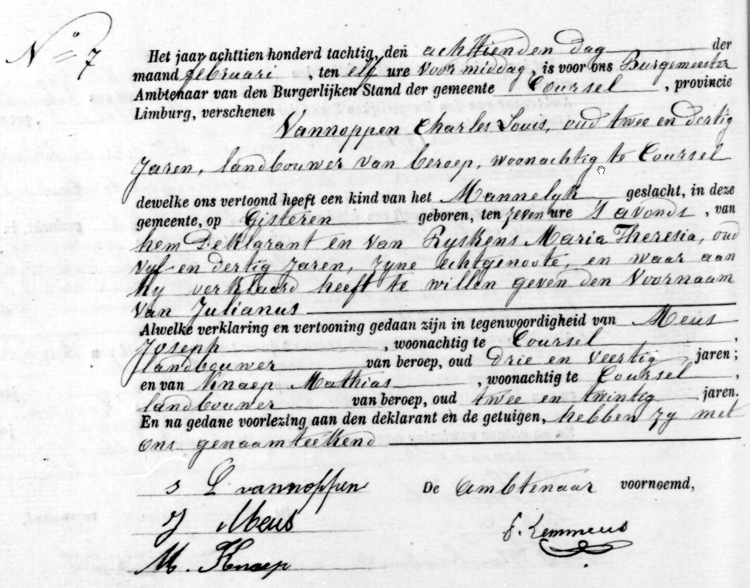 N° 7
Het jaar achttien honderd tachtig, den achttienden dag der
maand februari, ten elf ure voormiddag, is voor ons Burgemeester
Ambtenaar van den Burgerlijken Stand der gemeente Coursel, provincie
Limburg, verschenen
Vannoppen Charles Louis, oud twee en dertig
Jaren, landbouwer van beroep, woonachtig te Coursel
dewelke ons vertoond heeft een kind van het Mannelyk geslacht, in deze
gemeente, op Gisteren geboren, ten zeven ure 's avonds, van
hem deklarant en van Ryskens Maria Theresia, oud
vyf en dertig Jaren, zyne echtgenoote, en waar aan
hy verklaard heeft te willen geven den Voornaam
van Julianus
Alwelke verklaring en vertooning gedaan zijn in tegenwoordigheid van Meus
Joseph, woonachtig te Coursel,
landbouwer van beroep, oud drie en veertig jaren;
en van Knaep Mathias, woonachtig te Coursel,
landbouwer van beroep, oud twee en twintig jaren.
En na gedane voorlezing aan den deklarant en de getuigen, hebben zy met
ons genaamteekend
L vannoppen De Ambtenaar voornoemd,
J Meus
M. Knaep